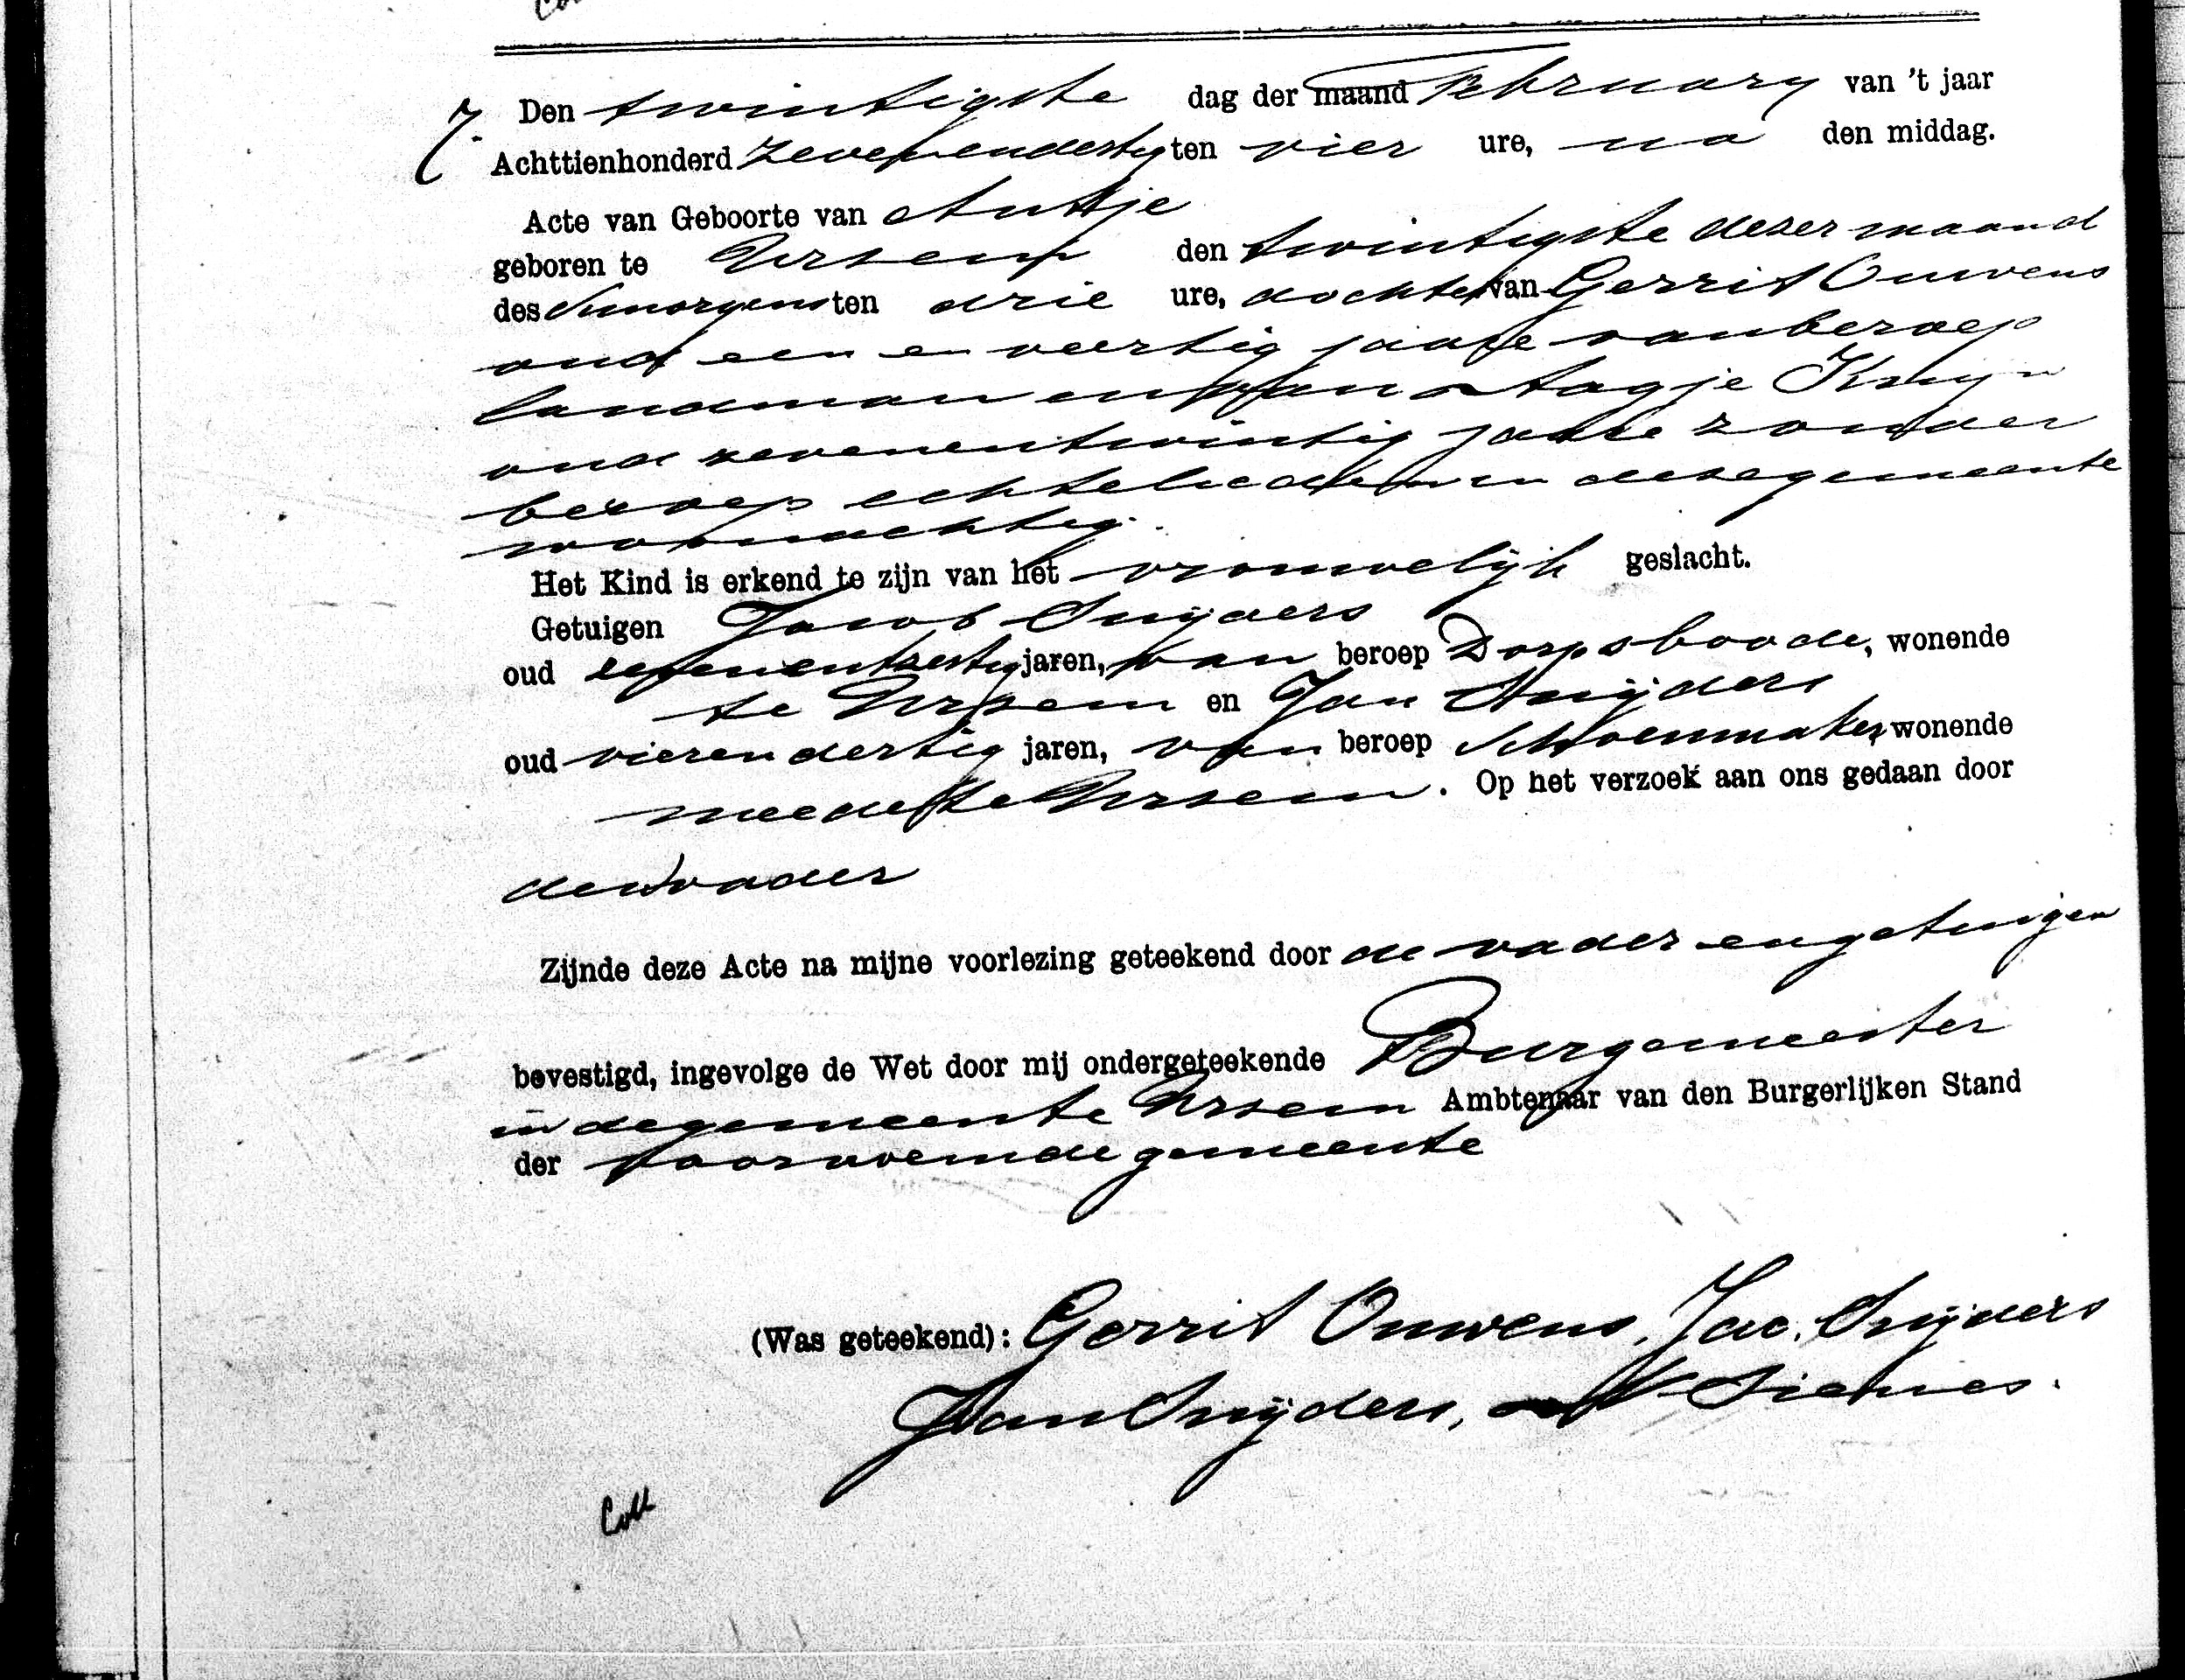 7. Den twintigste dag der maand February van 't jaar
Achttienhonderd zevenendertig ten vier ure, na den middag.
Acte van Geboorte van Antje
geboren te Ursem den twintigste dezer maand
des smorgens ten drie ure, dochter van Gerrit Ouwens
oud een en veertig jaare van beroep
landman en van Aagje Kruyn
oud zevenentwintig jaare zonder
beroep echtelieden in deze gemeente
woonachtig.
Het Kind is erkend te zijn van het vrouwelijk geslacht.
Getuigen Jacob Snijders
oud zevenentsestig jaren, van beroep Dorpsboode, wonende
te Ursem en Jan Snijders
oud vierendertig jaren, van beroep Schoenmaker, wonende
meede te Ursem. Op het verzoek aan ons gedaan door
den vader
Zijnde deze Acte na mijne voorlezing geteekend door de vader en getuigen
bevestigd, ingevolge de Wet door mij ondergeteekende Burgemeester
in de gemeente Ursem Ambtenaar van den Burgerlijken Stand
der voornoemde gemeente
(Was geteekend): Gerrit Ouwens, Jac. Snijders
Jan Snijders,
Coll